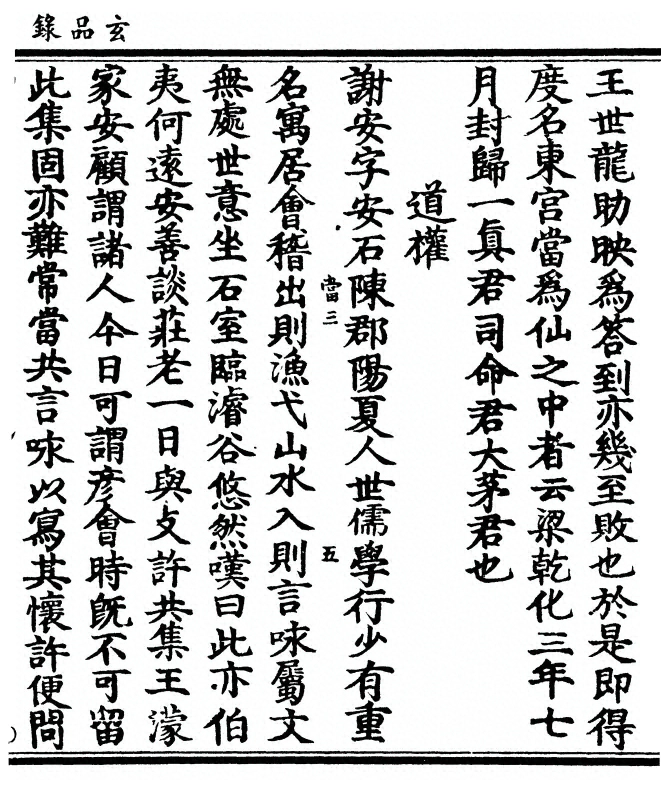 玄品錄
王世龍助映爲答到亦幾至敗也於是即得
度名東宮當爲仙之中者云梁乾化三年七
月封歸一眞君司命君大茅君也
道權
謝安字安石陳郡陽夏人世儒學行少有重
當三
五
名寓居會稽出則漁弋山水入則言咏屬文
無處世意坐石室臨濬谷悠然嘆曰此亦伯
夷何遠安善談莊老一日與支許共集王濛
家安顧謂諸人今日可謂彦會時旣不可留
此集固亦難常當共言咏以寫其懷許便問